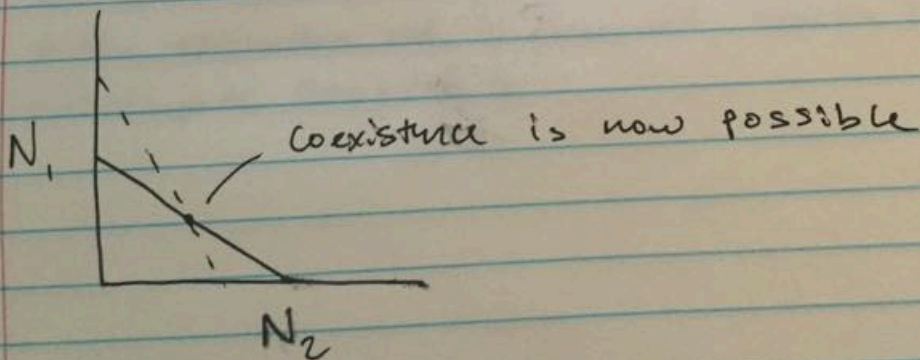 N₁
coexistence is now possible
N₂